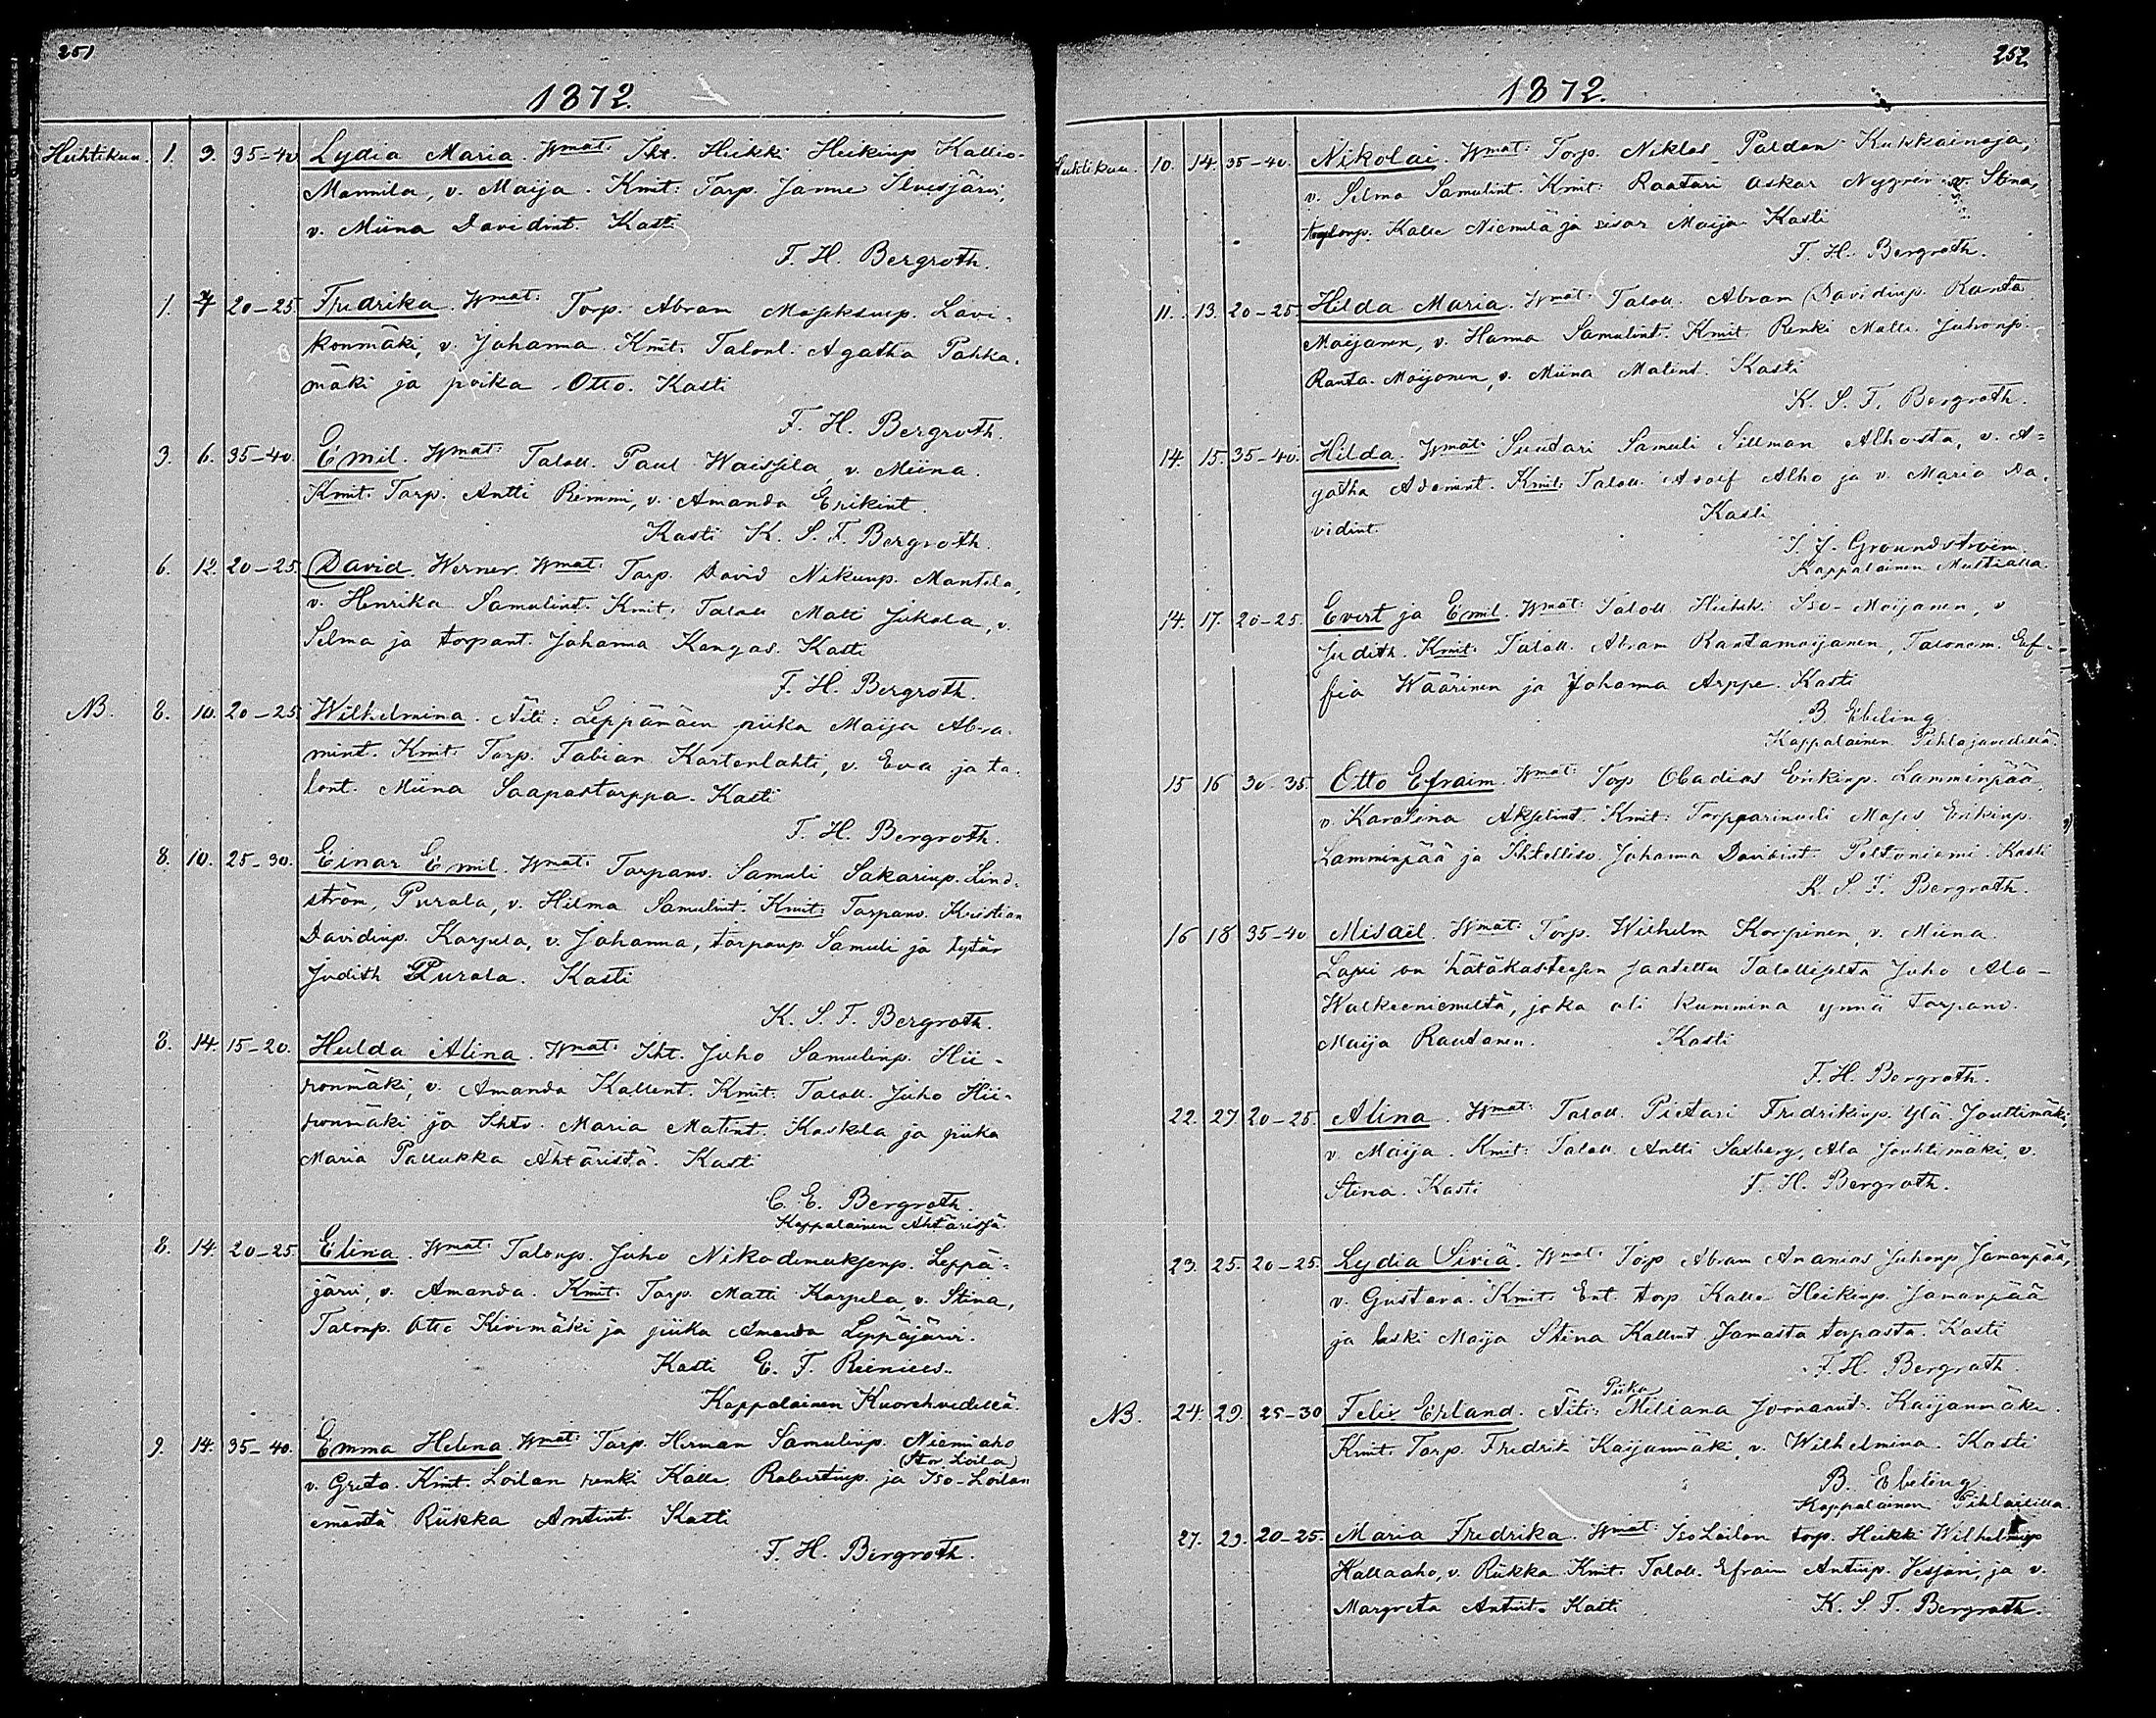 251
1872.
Huhtikuu. 1. 3. 35-40 Lydia Maria. Wmat: Iht. Heikki Heikinp. Kallio-
Mannila, v. Maija. Kmit: Torp. Janne Ilvesjärvi,
v. Miina Davidint. Kasti
F. H. Bergroth.
1. 7 20-25. Fredrika. Wmat: Torp. Abram Lavi-
konmäki, v. Johanna. Kmit: Talonl. Agatha Pahka-
mäki ja poika Otto. Kasti
F. H. Bergroth.
3. 6. 35-40. Emil. Wmat: Taloll. Paul Waissila, v. Miina.
Kmit: Torp. Antti Remmi, v. Amanda Erikint.
Kasti K. S. F. Bergroth.
6. 12. 20-25. David. Werner. Wmat: Torp. David Nikunp. Mantila,
v. Henrika Samulint. Kmit: Taloll Matti Jukola, v.
Selma ja torpant. Johanna Kangas. Kasti
F. H. Bergroth.
NB. 8. 10. 20-25 Wilhelmina. Äiti: Leppänäen piika Maija Abra-
mint. Kmit: Torp. Fabian Kartenlahti, v. Eva ja ta-
lont. Miina Saapastorppa. Kasti
F. H. Bergroth.
8. 10. 25-30. Einar Emil. Wmat: Torpanv. Samuli Sakarinp. Lind-
ström, Purala, v. Hilma Samulint. Kmit: Torpanv. Kristian
Davidinp. Karpela, v. Johanna, torpanp. Samuli ja tytär
Judith Purala. Kasti
K. S. F. Bergroth.
8. 14. 15-20. Hulda Alina. Wmat: Iht. Juho Samulinp. Hii-
ronmäki, v. Amanda Kallent. Kmit: Taloll. Juho Hii-
ronmäki ja Ihtv. Maria Matint. Koskela ja piika
Maria Pallukka Ähtäristä. Kasti
C. E. Bergroth.
Kappalainen Ähtärissä.
8. 14. 20-25 Elina. Wmat: Talonp. Juho Nikodemuksenp. Leppä-
järvi, v. Amanda. Kmit: Torp. Matti Karpela, v. Stina,
Talonp. Otto Kivimäki ja piika Amanda Leppäjärvi.
Kasti E. F. Reinius.
Kappalainen Kuorehvedellä.
9. 14. 35-40. Emma Helena. Wmat: Torp. Herman Samulinp. Niemiaho
(Stor Loila)
v. Greta. Kmit. Loilan renki Kalle Robertinp. ja Iso-Loilan
emäntä Riikka Antint. Kasti
F. H. Bergroth.
252.
1872.
Huhtikuu. 10. 14. 35-40. Nikolai. Wmat: Torp. Niklas Paldan Kukkainoja,
v. Selma Samulint. Kmit: Raatari Oskar Nygren v. Stina,
Kalle Niemilä ja sisar Maija. Kasti
F. H. Bergroth.
11. 13. 20-25. Hilda Maria. Wmat: Taloll. Abram Davidinp. Ranta
Maijanen, v. Hanna Samulint. Kmit. Renki Matti Juhonp.
Ranta-Moijanen, v. Miina Matint. Kasti
K. S. F. Bergroth.
14. 15. 35-40. Hilda. Wmat: Suutari Samuli Sillman Alhosta, v. A-
gatha Adamint. Kmit: Taloll. Adolf Alho ja v. Maria Da-
vidint. Kasti
I. J. Groundstroem.
Kappalainen Multialla.
14. 17. 20-25. Evert ja Emil. Wmat: Taloll Heikki Iso-Moijanen, v
Judith. Kmit: Taloll. Abram Rantamoijanen, Talonem. Eu-
fia Wäärinen ja Johanna Arppe. Kasti
B. Ebeling
Kappalainen Pihlajavedellä.
15 16 30-35. Otto Efraim. Wmat: Torp Obadias Erikinp. Lamminpää,
v. Karolina Akselint. Kmit: Torpparinveli Moses Erikinp.
Lamminpää ja Ihtelliso. Johanna Davidint. Peltoniemi. Kasti
K. S. F. Bergroth.
16 18 35-40 Misaël. Wmat: Torp. Wilhelm Korpinen, v. Miina.
Lapsi on hätäkasteesen saatettu Talolliselta Juho Ala-
Walkeeniemeltä, joka oli kummina ynnä torpanv.
Maija Rautanen. Kasti
F. H. Bergroth.
22. 27. 20-25. Alina. Wmat: Taloll. Pietari Fredrikinp. Ylä Jouttimäki,
v. Maija. Kmit: Taloll. Antti Saxberg, Ala Jouhtimäki, v.
Stina. Kasti F. H. Bergroth.
23. 25. 20-25. Lydia Siviä. Wmat: Torp Abram Ananias Juhonp. Jamanpää,
v. Gustava. Kmit: Ent. torp Kalle Heikinp. Jamanpää
ja leski Maija Stina Kallent Jamasta torpasta. Kasti
F. H. Bergroth.
Piika
NB. 24. 29. 25-30 Felix Erland. Äiti: Miliana Joonaant. Kaijanmäki
Kmit: Torp. Fredrik Kaijanmäki, v. Wilhelmina. Kasti
B. Ebeling.
Kappalainen
27. 29. 20-25. Maria Fredrika. Wmat: Iso Loilan torp. Heikki Wilhelminp
Hallaaho, v. Riikka. Kmit: Taloll. Efraim Antinp. Vesjari, ja v.
Margreta Antint. Kasti K. S. F. Bergroth.